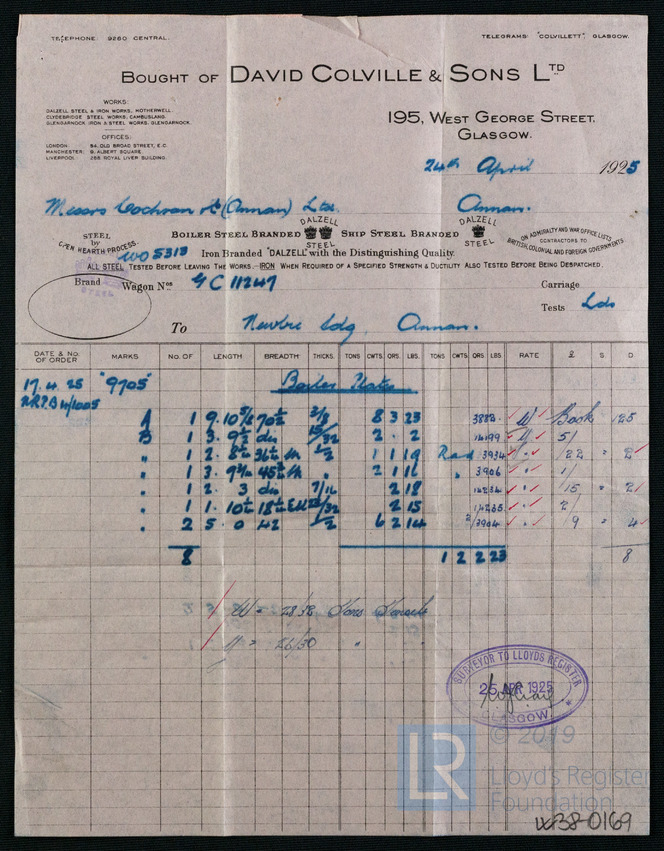 TELEPHONE 9260 CENTRAL.
TELEGRAMS "COLVILLETT", GLASGOW.
BOUGHT OF DAVID COLVILLE & SONS LTD
WORKS:
DALZELL STEEL & IRON WORKS, MOTHERWELL.
CLYDEBRIDGE STEEL WORKS, CAMBUSLANG.
GLENGARNOCK IRON & STEEL WORKS, GLENGARNOCK.
OFFICES:
LONDON: 94, OLD BROAD STREET, E.C.
MANCHESTER: 9, ALBERT SQUARE.
LIVERPOOL: 288, ROYAL LIVER BUILDING.
195, WEST GEORGE STREET,
GLASGOW.
24th April 1925
Messrs Cochran & Co (Annan) Ltd.
Annan.
STEEL by OPEN HEARTH PROCESS.
BOILER STEEL BRANDED DALZELL STEEL SHIP STEEL BRANDED DALZELL STEEL
ON ADMIRALTY AND WAR OFFICE LISTS CONTRACTORS TO BRITISH, COLONIAL AND FOREIGN GOVERNMENTS
WO 5313 Iron Branded "DALZELL" with the Distinguishing Quality.
ALL STEEL TESTED BEFORE LEAVING THE WORKS.—IRON WHEN REQUIRED OF A SPECIFIED STRENGTH & DUCTILITY ALSO TESTED BEFORE BEING DESPATCHED.
Brand Wagon Nos GC 11247 Carriage
Tests Lds
To Newbie Sdg, Annan.
DATE & NO. OF ORDER MARKS NO. OF LENGTH BREADTH THICKS. TONS CWTS. QRS. LBS. TONS CWTS QRS. LBS. RATE £ S. D
17.4.25 "9705" Boiler Plates
A 1 9.10 5/8 70 1/2 8 3 23 3882 W Back 125
B 1 3. 9 1/2 dia 15/32 2 . 2 W 5/
" 1 2. 1/2 1 1 19 Rad 3934 " /22 = 2
" 1 3. 2 1 16 " 3906 " 1/
" 1 2. 3 dia 7/16 2 18 " /15 = 2
" 2 15 " 2/
" 2 5. 0 42 1/2 6 2 14 3904 " /9 = 4
8 1 2 2 23 8
W = 28/32 Tons Tensile
= 26/30 "
SURVEYOR TO LLOYDS REGISTER
25 APR 1925
GLASGOW
© 2019
LR Lloyd's Register
Foundation
W38-0169